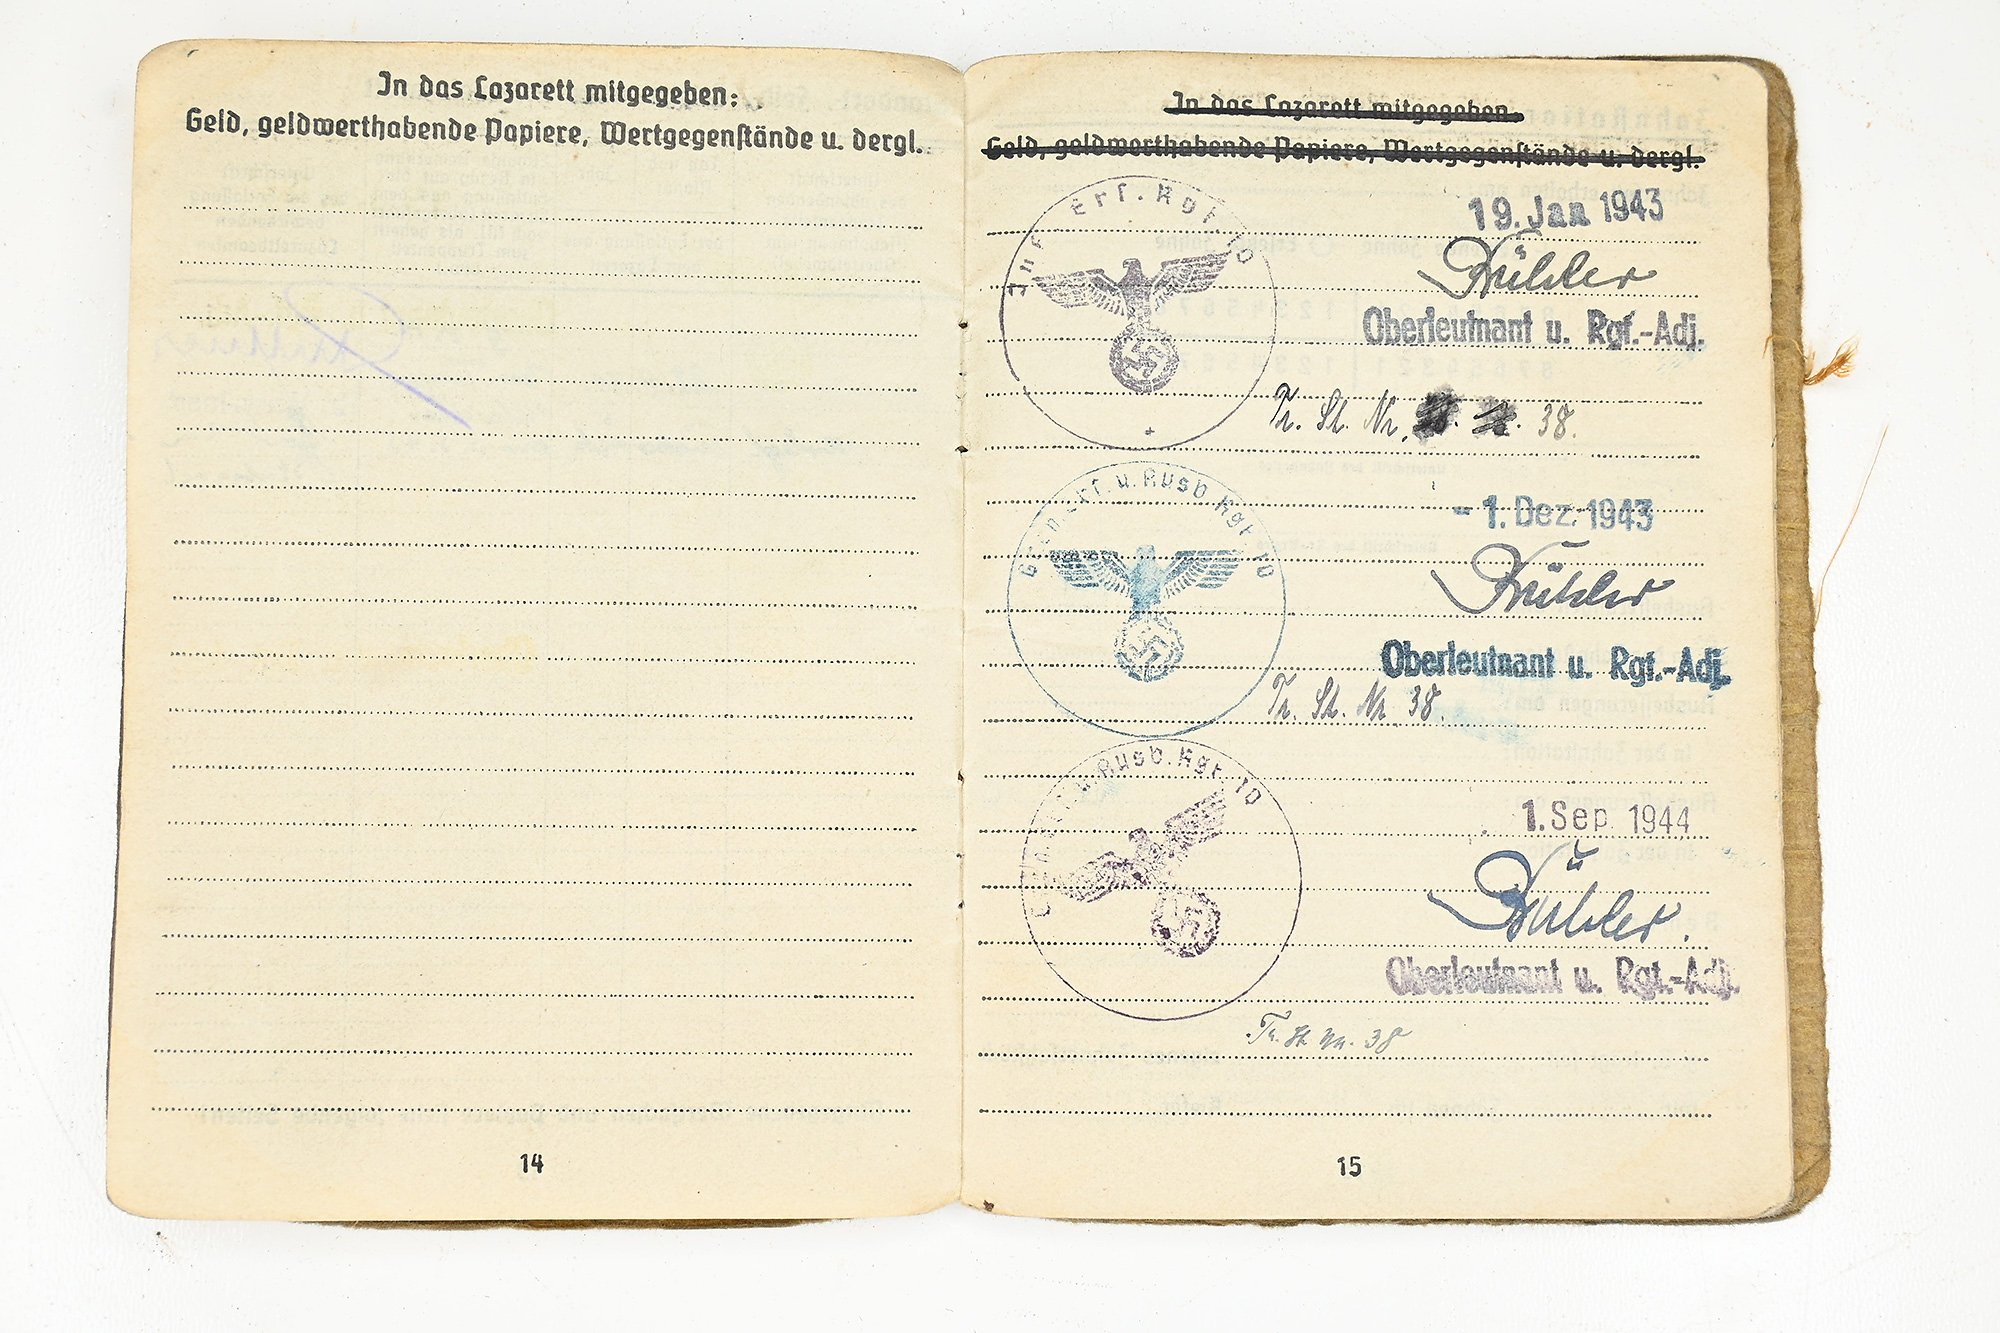 In das Lazarett mitgegeben:
Geld, geldwerthabende Papiere, Wertgegenstände u. dergl.
14
In das Lazarett mitgegeben.
Geld, geldwerthabende Papiere, Wertgegenstände u. dergl.
Inf. Ers. Rgt. 10
19. Jan 1943
Oberleutnant u. Rgt.-Adj.
Tr. St. Nr. 38.
Gren. Ers. u. Ausb. Rgt. 10
- 1. Dez. 1943
Oberleutnant u. Rgt.-Adj.
Tr. St. Nr. 38.
Gren. Ers. u. Ausb. Rgt. 10
1. Sep. 1944
Oberleutnant u. Rgt.-Adj.
Tr. St. Nr. 38
15